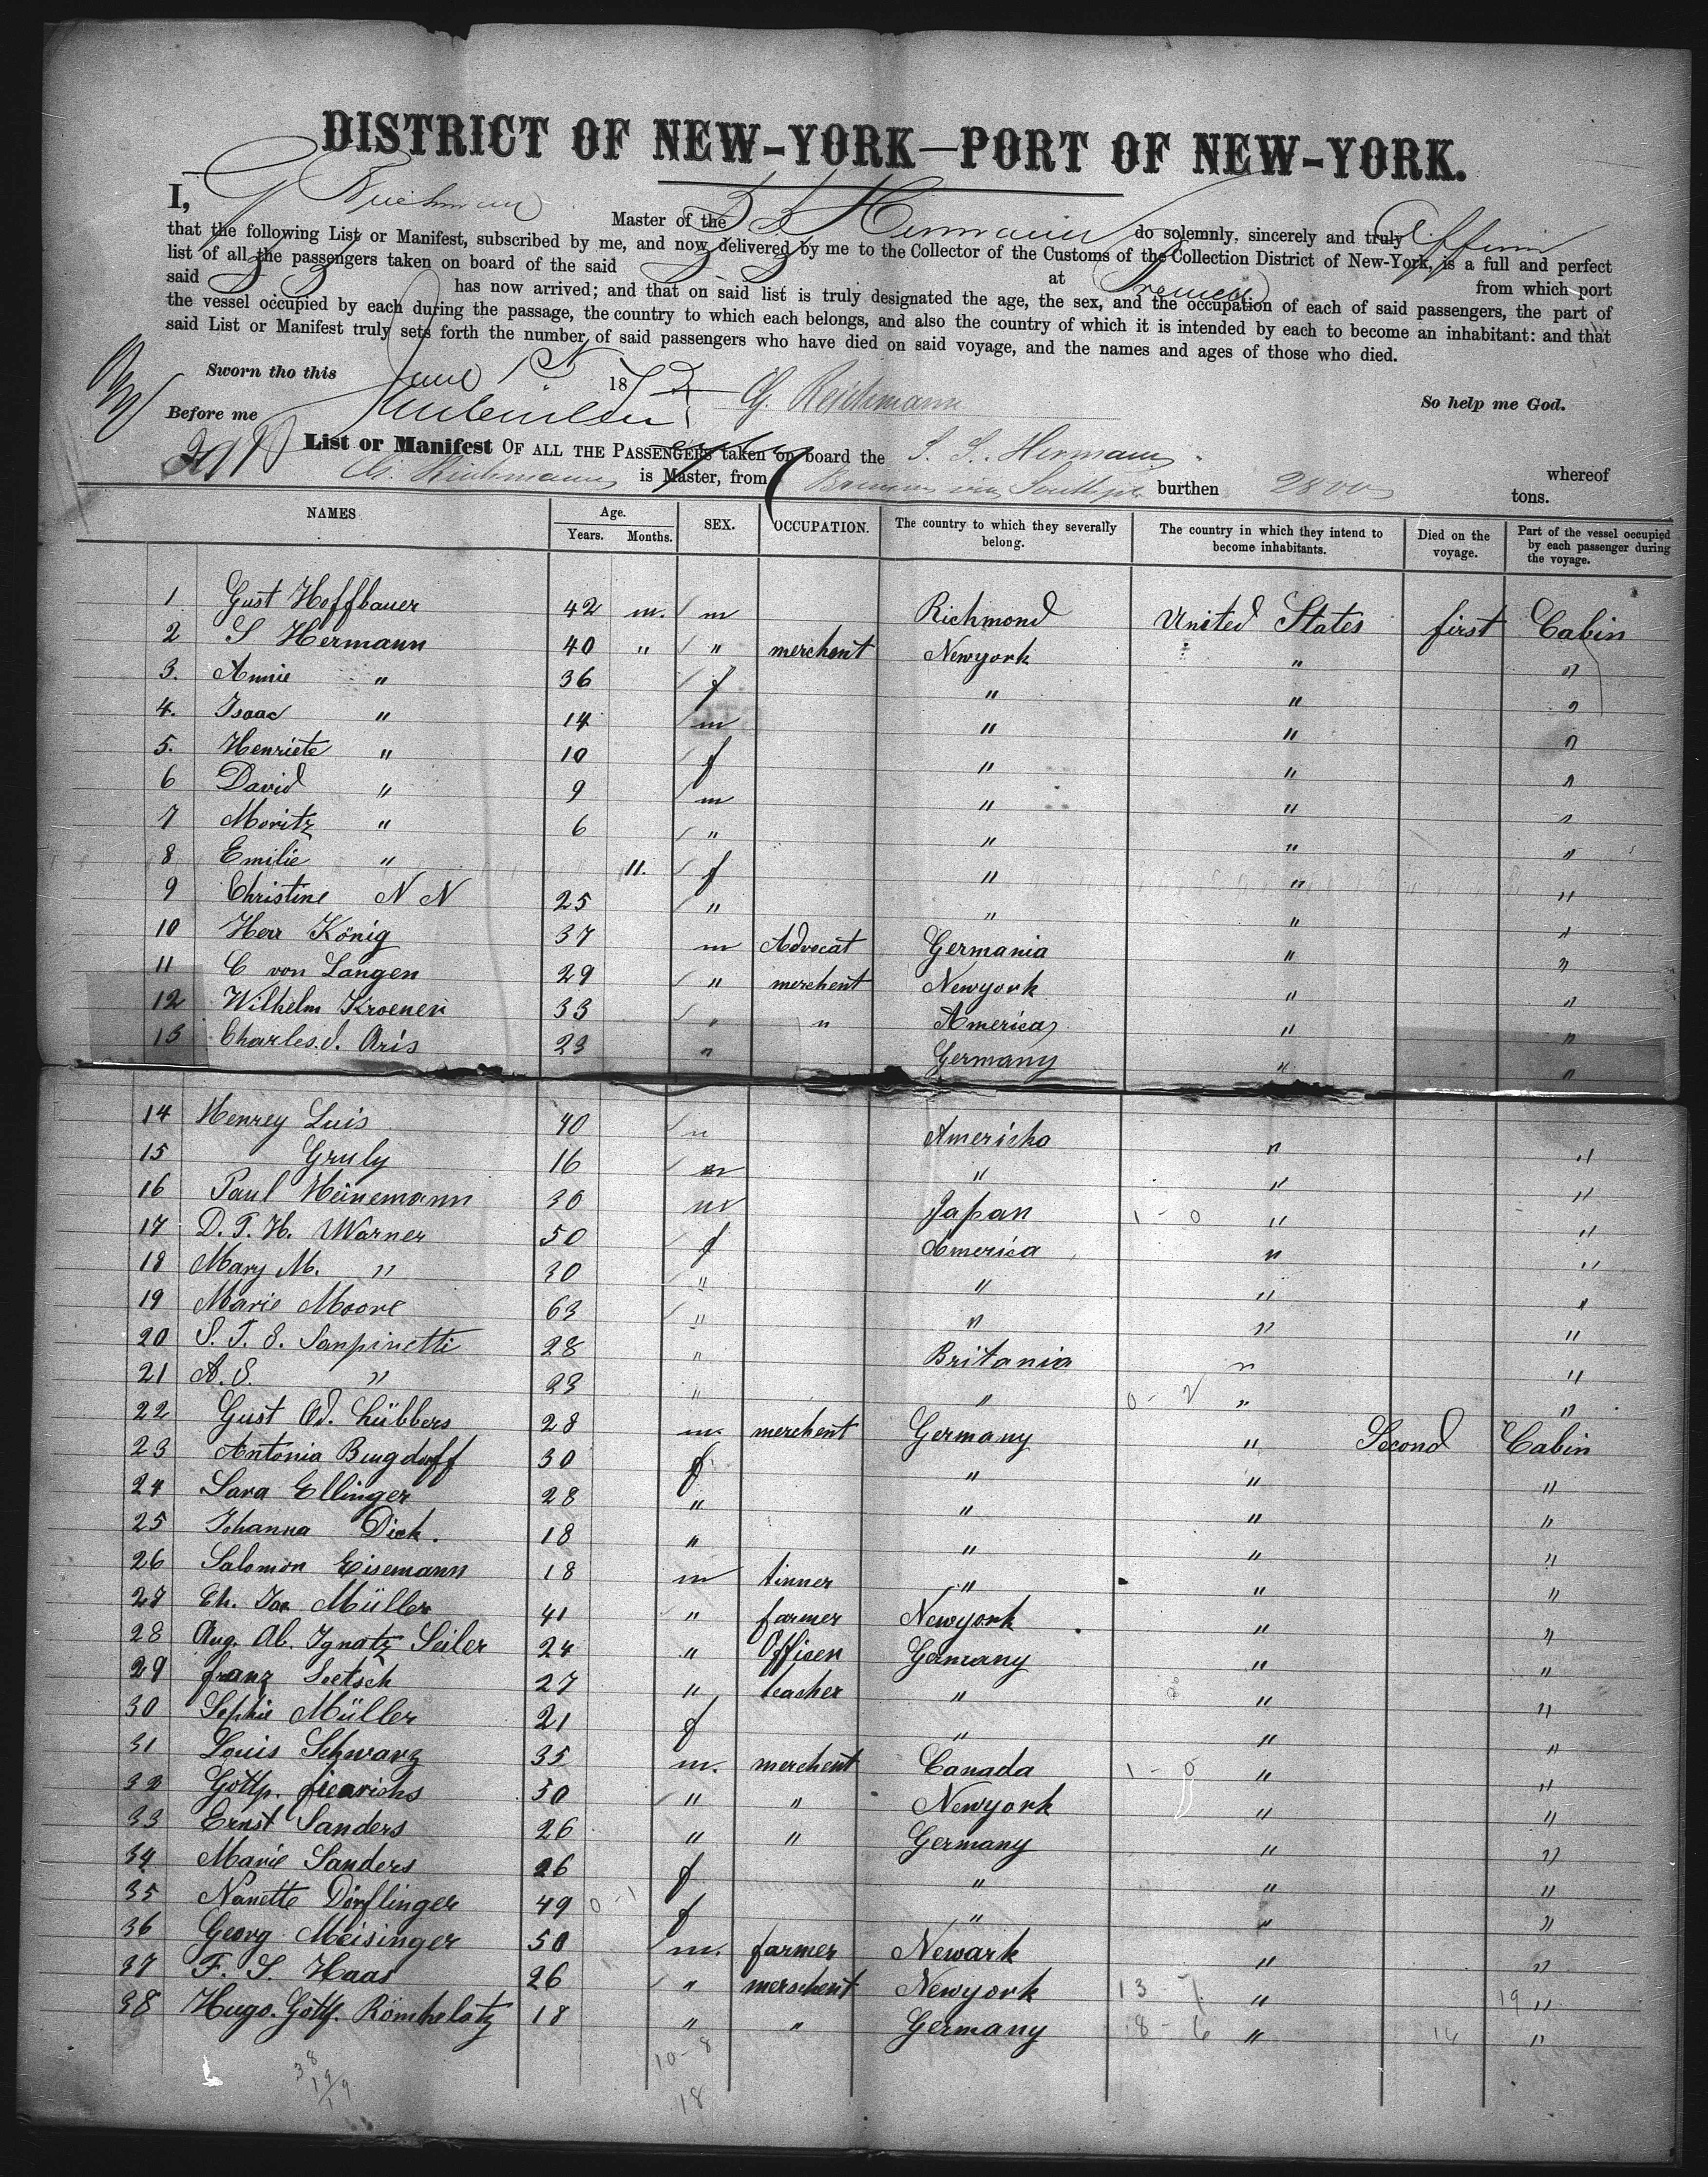 DISTRICT OF NEW-YORK—PORT OF NEW-YORK.
I, G Reichmann Master of the S S Hermann do solemnly, sincerely and truly affirm
that the following List or Manifest, subscribed by me, and now delivered by me to the Collector of the Customs of the Collection District of New-York, is a full and perfect
list of all the passengers taken on board of the said S S at Bremen from which port
said S S has now arrived; and that on said list is truly designated the age, the sex, and the occupation of each of said passengers, the part of
the vessel occupied by each during the passage, the country to which each belongs, and also the country of which it is intended by each to become an inhabitant: and that
said List or Manifest truly sets forth the number of said passengers who have died on said voyage, and the names and ages of those who died.
Sworn tho this June 1st 1872 G. Reichmann So help me God.
Before me
List or Manifest OF ALL THE PASSENGERS taken on board the S. S. Hermann whereof
G. Reichmann is Master, from Bremen via burthen 2800 tons.
NAMES Age. Years. Months. SEX. OCCUPATION. The country to which they severally belong. The country in which they intend to become inhabitants. Died on the voyage. Part of the vessel occupied by each passenger during the voyage.
1 Gust Hoffbauer 42 m. m Richmond United States first Cabin
2 S Hermann 40 " " merchent Newyork " "
3. Annie " 36 f " " "
4. Isaac " 14 m " " "
5. Henriete " 10 f " " "
6 David " 9 m " " "
7 Moritz " 6 " " " "
8 Emilie " 11. f " " "
9 Christine N N 25 " " " "
10 Herr König 37 m Advocat Germania " "
11 C von Langen 29 " merchent Newyork " "
12 Wilhelm Kroener 33 " " America " "
13 Charles. J. Aris 23 " Germany " "
14 Henrey Luis 40 " Americha " "
15 Gruly 16 m " " "
16 Paul Heinemann 30 m Japan 1 - 0 " "
17 D. T. H. Warner 50 f America " "
18 Mary M. " 30 " " " "
19 Marie Moore 63 " " " "
20 S. T. S. Sanpinetti 28 " Britania " "
21 A. S. " 23 " " 0 - 2 " "
22 Gust Ad. Lübbers 28 m. merchent Germany " Second Cabin
23 Antonia Burgdorff 30 f " " "
24 Sara Ellinger 28 " " " "
25 Johanna Dick. 18 " " " "
26 Salomon Eisemann 18 m tinner " " "
27 Eh. Jac Müller 41 " farmer Newyork " "
28 Aug. Al. Ignatz Seiler 24 " Officer Germany " "
29 franz Seetsch 27 " teacher " " "
30 Sophie Müller 21 f " " "
31 Louis Schwarz 35 m. merchent Canada 1 - 0 " "
32 Gottp. fiearichs 50 " " Newyork " "
33 Ernst Sanders 26 " " Germany " "
34 Marie Sanders 26 f " " "
35 Nanette Dörflinger 49 0 - 1 f " " "
36 Georg Meisinger 50 m. farmer Newark " "
37 F. S. Haas 26 " merschent Newyork 13 - 7 " 19 "
38 Hugo. Gottf. Römhelatz 18 " " Germany 8 - 6 " 14 "
38 10 - 8
19/19 18